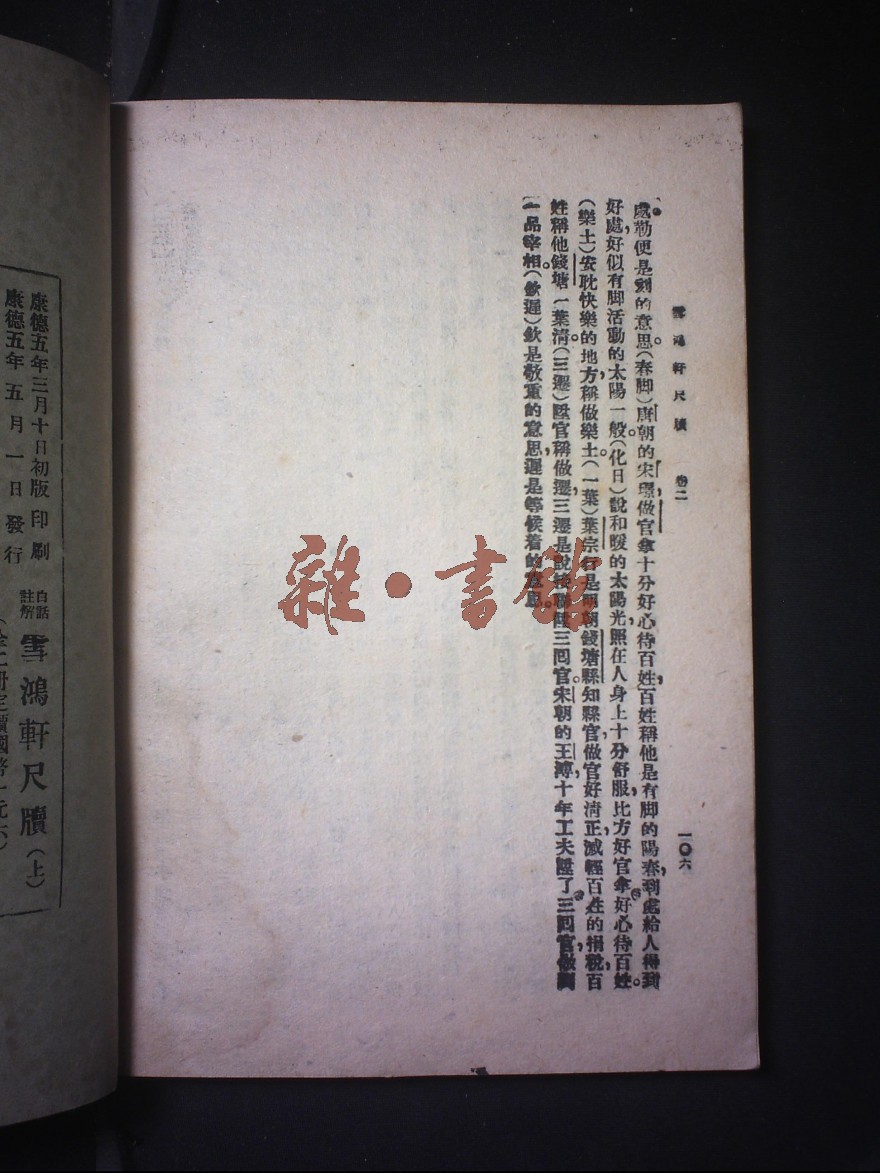 雪鴻軒尺牘 卷二
一〇六
處勒便是刻的意思。(春脚)唐朝的宋璟,做官拿十分好心待百姓,百姓稱他是有脚的陽春,到處給人得到
好處,好似有脚活動的太陽一般。(化日)說和暖的太陽光,照在人身上十分舒服,比方好官拿好心待百姓。
(樂土)安耽快樂的地方,稱做樂土。(一葉)葉宗行是明朝錢塘縣知縣官,做官好清正,減輕百姓的捐稅,百
姓稱他錢塘一葉清。(三遷)陞官稱做遷,三遷是說接聯陞三回官。宋朝的王溥,十年工夫陞了三回官,做到
一品宰相。(欽遲)欽是敬重的意思,遲是等候着的意思。
雜·書館
康德五年三月十日初版印刷
康德五年五月一日發行
白話註解 雪鴻軒尺牘(上)
冊定價國幣一元六)